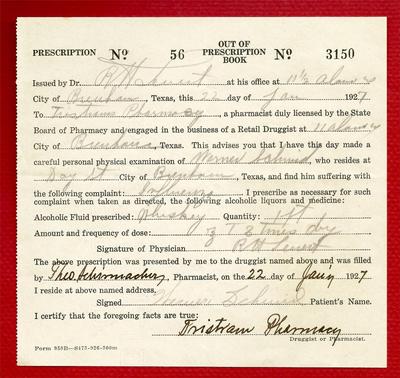 PRESCRIPTION No 56 OUT OF PRESCRIPTION BOOK No 3150
Issued by Dr. R H at his office at
City of Brenham, Texas, this 22 day of Jan 1927
To Tristram Pharmacy, a pharmacist duly licensed by the State
Board of Pharmacy and engaged in the business of a Retail Druggist at
City of Brenham, Texas. This advises you that I have this day made a
careful personal physical examination of Werner, who resides at
Day St City of Brenham, Texas, and find him suffering with
the following complaint: Influenza I prescribe as necessary for such
complaint when taken as directed, the following alcoholic liquors and medicine:
Alcoholic Fluid prescribed: Whiskey Quantity:
Amount and frequency of dose: 3 times dy
Signature of Physician R H
The above prescription was presented by me to the druggist named above and was filled
by Theo. Schirmacher, Pharmacist, on the 22 day of Jan'y 1927
I reside at above named address.
Signed Werner Patient's Name.
I certify that the foregoing facts are true:
Tristram Pharmacy
Druggist or Pharmacist.